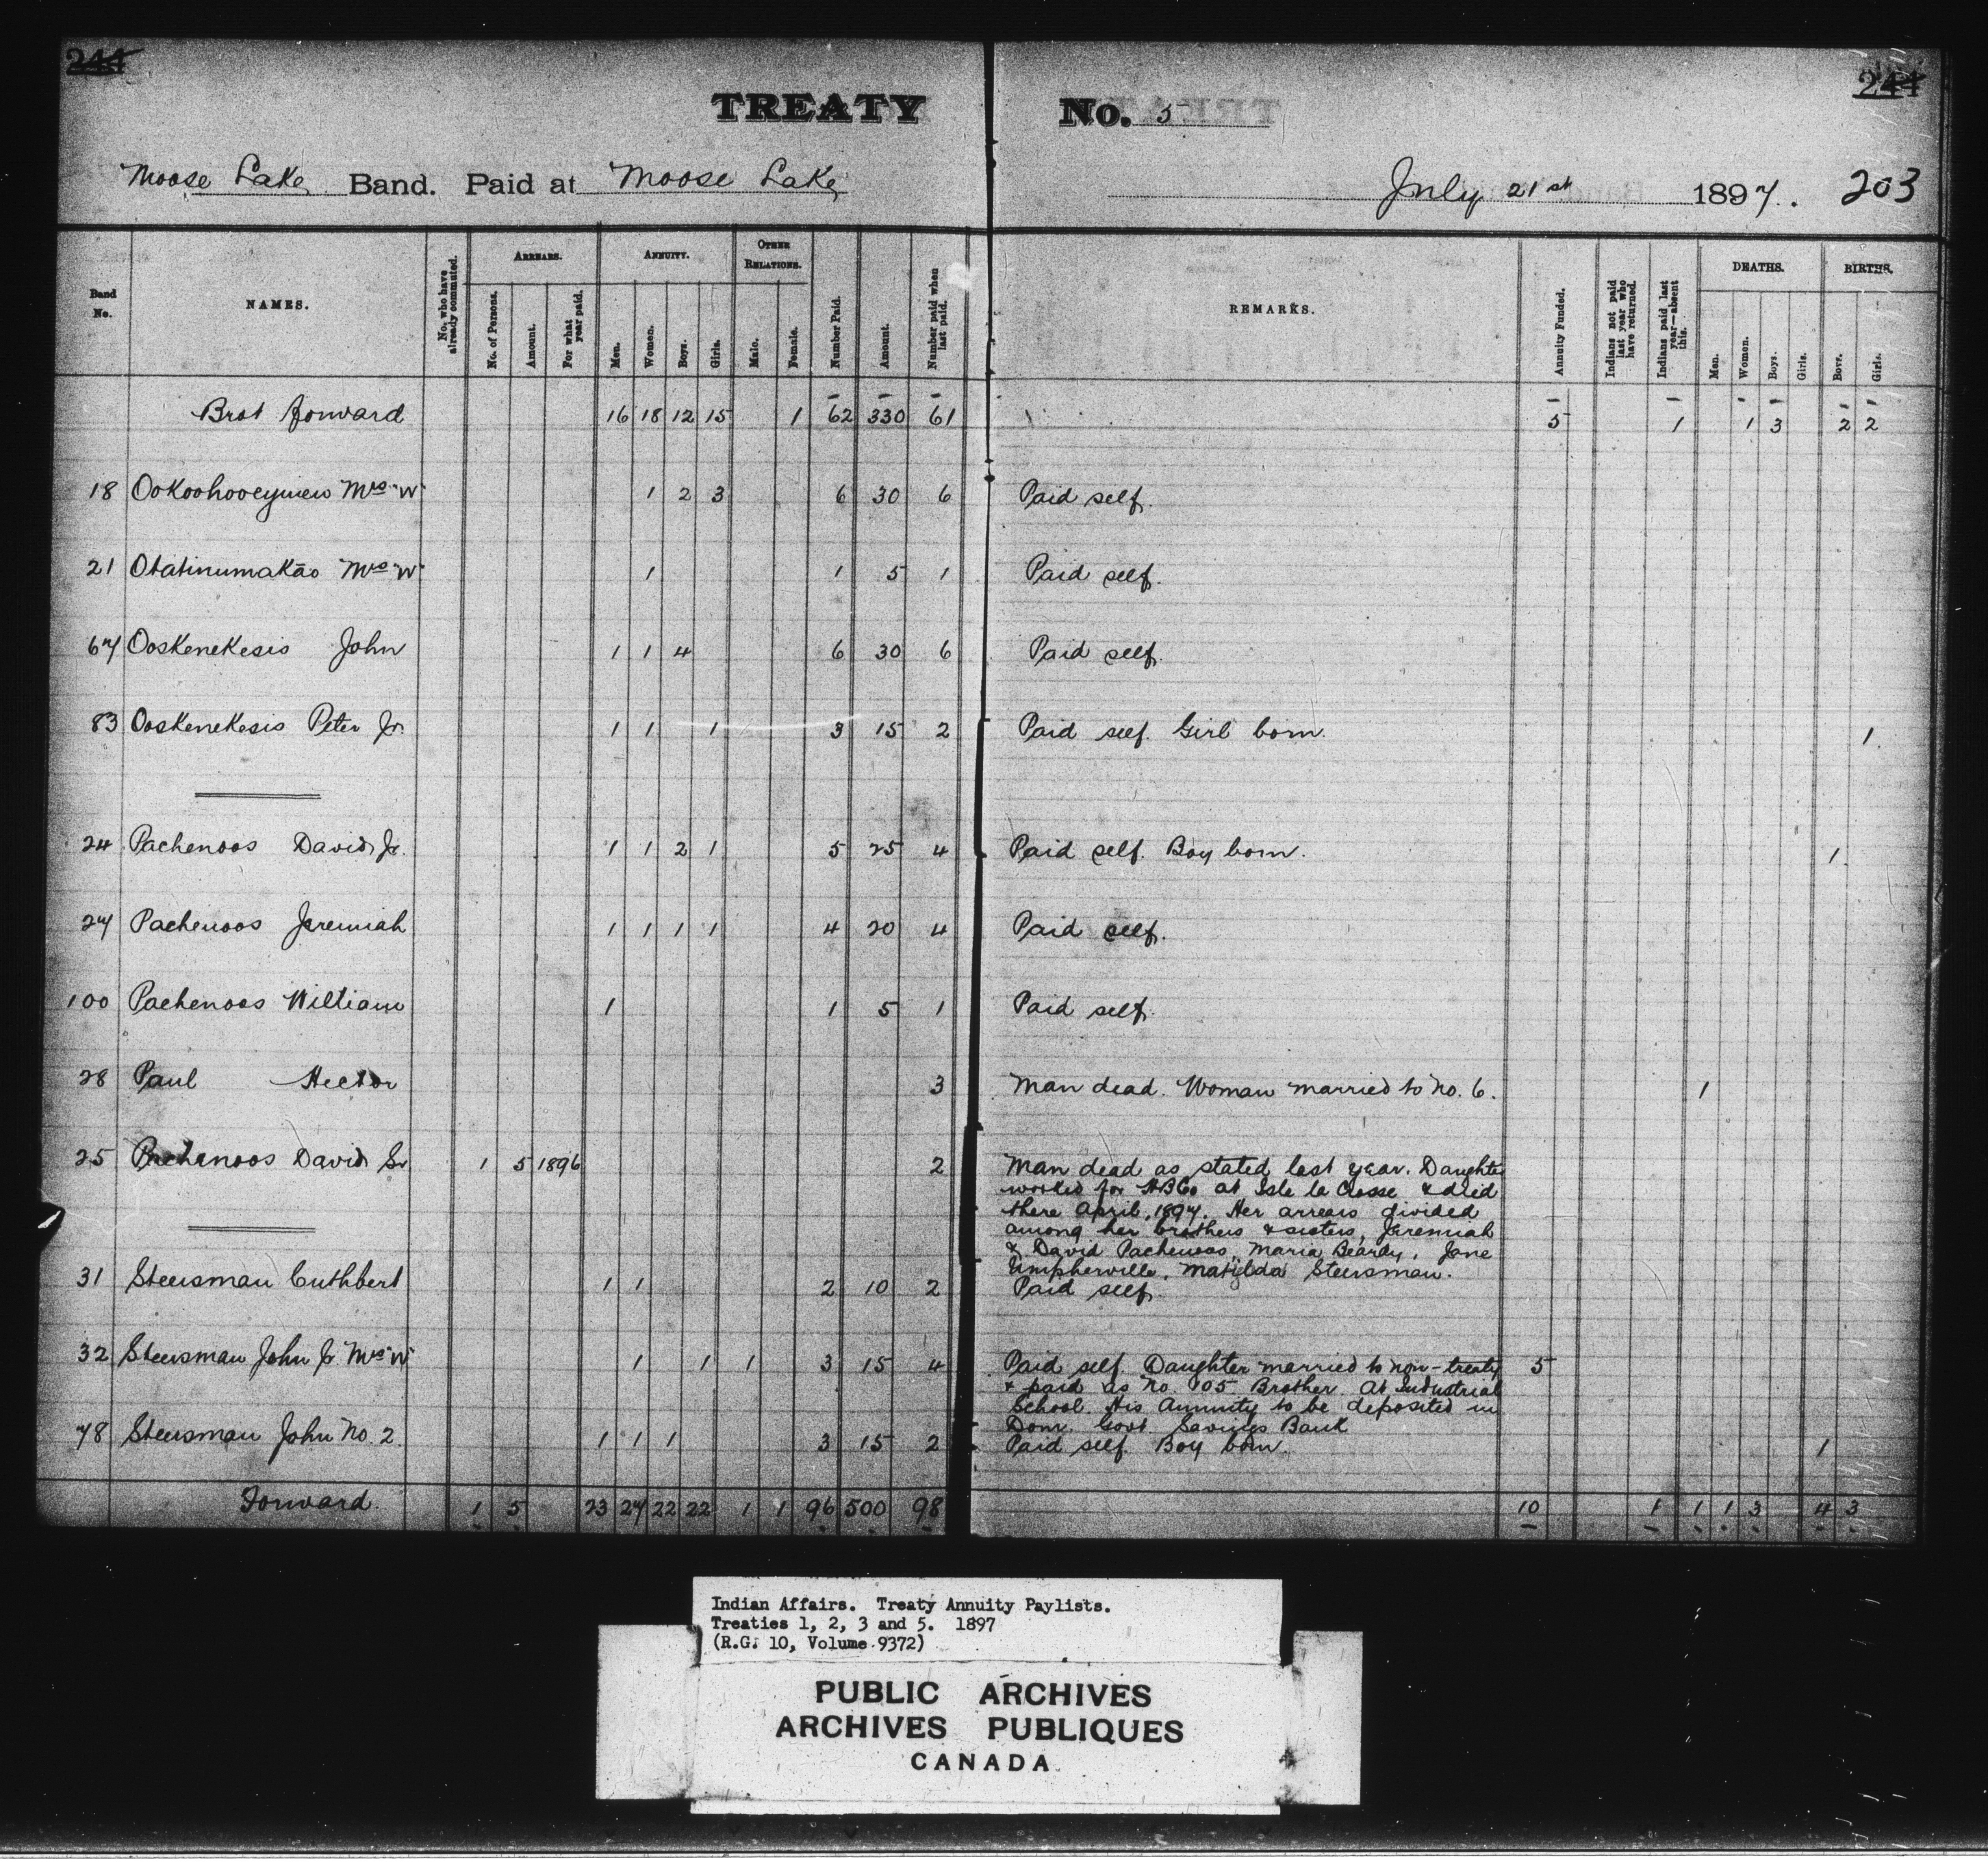 244 244
TREATY No. 5
Moose Lake Band. Paid at Moose Lake July 21st 1897. 203
Band No. NAMES. No. who have already commuted. ARREARS. No. of Persons. Amount. For what year paid. ANNUITY. Men. Women. Boys. Girls. OTHER RELATIONS. Male. Female. Number Paid. Amount. Number paid when last paid. REMARKS. Annuity Funded. Indians not paid last year who have returned. Indians paid last year—absent this. DEATHS. Men. Women. Boys. Girls. BIRTHS. Boys. Girls.
Brot forward 16 18 12 15 1 62 330 61 5 1 1 3 2 2
18 Ookoohooeymew Mrs "W" 1 2 3 6 30 6 Paid self.
21 Otatinumakāo Mrs "W" 1 1 5 1 Paid self.
67 Ooskenekesis John 1 1 4 6 30 6 Paid self.
83 Ooskenekesis Peter Jr. 1 1 1 3 15 2 Paid self. Girl born. 1
24 Pachenoos David Jr. 1 1 2 1 5 25 4 Paid self. Boy born. 1
27 Pachenoos Jeremiah 1 1 1 1 4 20 4 Paid self.
100 Pachenoos William 1 1 5 1 Paid self.
28 Paul Hector 3 Man dead. Woman married to No. 6. 1
25 Pachenoos David Sr 1 5 1896 2 Man dead as stated last year. Daughter
worked for HBCo at Isle la Crosse & died
there April, 1897. Her arrears divided
among her brothers & sisters, Jeremiah
& David Pachenoos, Maria Beardy, Jane
Umpherville, Matilda Steersman.
31 Steersman Cuthbert 1 1 2 10 2 Paid self.
32 Steersman John Jr. Mrs "W" 1 1 1 3 15 4 Paid self. Daughter married to non-treaty 5
& paid as No. 105. Brother at Industrial
School. His Annuity to be deposited in
Dom. Govt. Savings Bank
78 Steersman John No. 2 1 1 1 3 15 2 Paid self. Boy born. 1
Forward 1 5 23 27 22 22 1 1 96 500 98 10 1 1 1 3 4 3
Indian Affairs. Treaty Annuity Paylists.
Treaties 1, 2, 3 and 5. 1897
(R.G. 10, Volume 9372)
PUBLIC ARCHIVES
ARCHIVES PUBLIQUES
CANADA